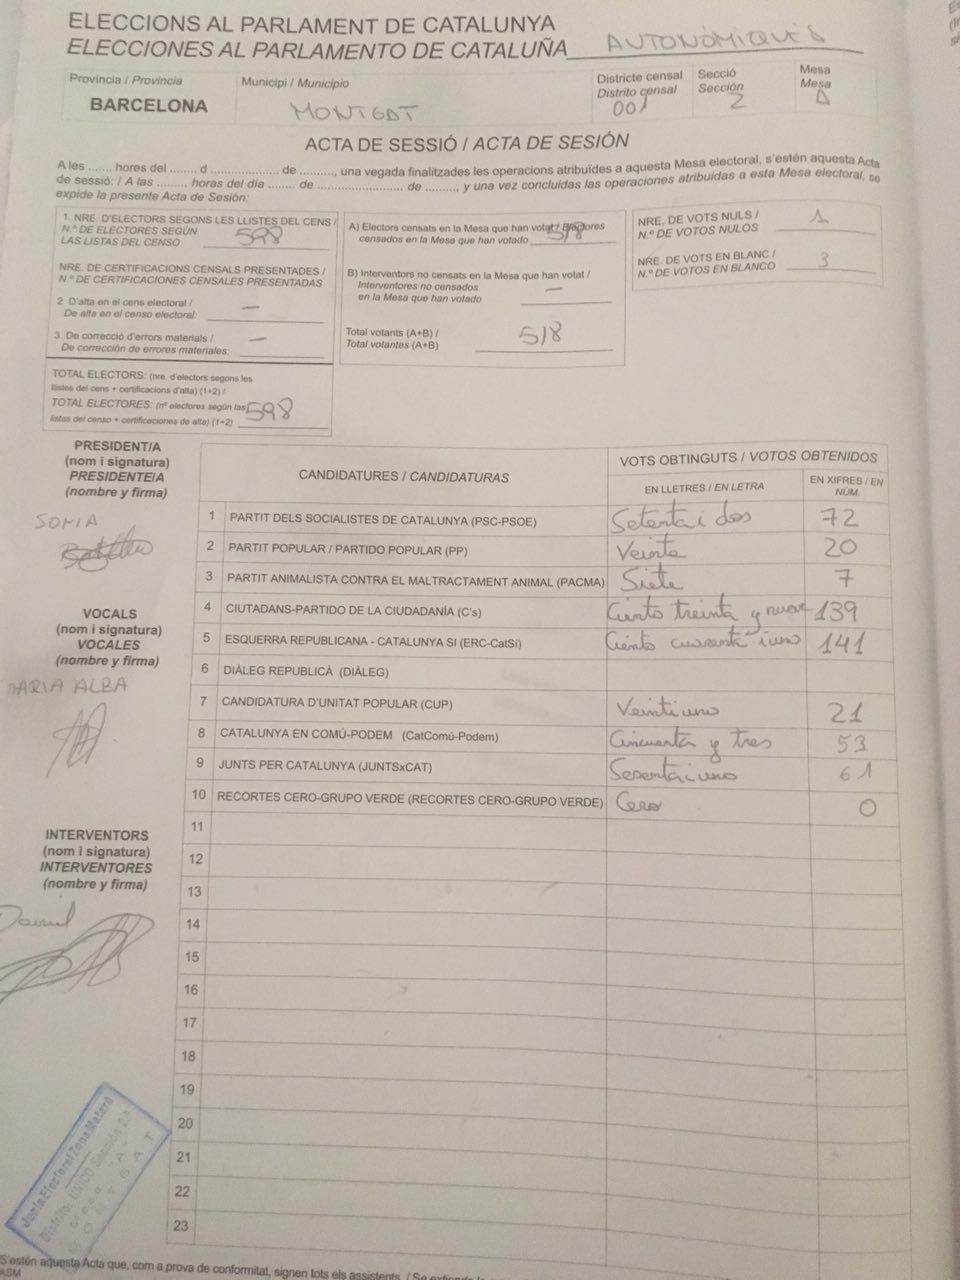 ELECCIONS AL PARLAMENT DE CATALUNYA
ELECCIONES AL PARLAMENTO DE CATALUÑA AUTONÒMIQUES
Província / Provincia
BARCELONA
Municipi / Municipio
MONTGAT
Districte censal
Distrito censal
001
Secció
Sección
2
Mesa
Mesa
A
ACTA DE SESSIÓ / ACTA DE SESIÓN
A les ....... hores del ....... d ................. de .........., una vegada finalitzades les operacions atribuïdes a aquesta Mesa electoral, s'estén aquesta Acta
de sessió: / A las ........ horas del día ....... de ................... de ........, y una vez concluidas las operaciones atribuidas a esta Mesa electoral, se
expide la presente Acta de Sesión:
1. NRE. D'ELECTORS SEGONS LES LLISTES DEL CENS /
N.º DE ELECTORES SEGÚN
LAS LISTAS DEL CENSO 598
NRE. DE CERTIFICACIONS CENSALS PRESENTADES /
N.º DE CERTIFICACIONES CENSALES PRESENTADAS
2. D'alta en el cens electoral /
De alta en el censo electoral: —
3. De correcció d'errors materials /
De corrección de errores materiales: —
TOTAL ELECTORS: (nre. d'electors segons les
llistes del cens + certificacions d'alta) (1+2) /
TOTAL ELECTORES: (nº electores según las
listas del censo + certificaciones de alta) (1+2) 598
A) Electors censats en la Mesa que han votat / Electores
censados en la Mesa que han votado 518
B) Interventors no censats en la Mesa que han votat /
Interventores no censados
en la Mesa que han votado —
Total votants (A+B) /
Total votantes (A+B) 518
NRE. DE VOTS NULS /
N.º DE VOTOS NULOS 1
NRE. DE VOTS EN BLANC /
N.º DE VOTOS EN BLANCO 3
PRESIDENT/A
(nom i signatura)
PRESIDENTE/A
(nombre y firma)
SONIA
VOCALS
(nom i signatura)
VOCALES
(nombre y firma)
MARIA ALBA
INTERVENTORS
(nom i signatura)
INTERVENTORES
(nombre y firma)
David
CANDIDATURES / CANDIDATURAS
VOTS OBTINGUTS / VOTOS OBTENIDOS
EN LLETRES / EN LETRA
EN XIFRES / EN NÚM.
1 PARTIT DELS SOCIALISTES DE CATALUNYA (PSC-PSOE) Setenta i dos 72
2 PARTIT POPULAR / PARTIDO POPULAR (PP) Veinte 20
3 PARTIT ANIMALISTA CONTRA EL MALTRACTAMENT ANIMAL (PACMA) Siete 7
4 CIUTADANS-PARTIDO DE LA CIUDADANÍA (C's) Ciento treinta y nueve 139
5 ESQUERRA REPUBLICANA - CATALUNYA SI (ERC-CatSí) Ciento cuarenta i uno 141
6 DIÀLEG REPUBLICÀ (DIÀLEG)
7 CANDIDATURA D'UNITAT POPULAR (CUP) Veintiuno 21
8 CATALUNYA EN COMÚ-PODEM (CatComú-Podem) Cincuenta y tres 53
9 JUNTS PER CATALUNYA (JUNTSxCAT) Sesenta i uno 61
10 RECORTES CERO-GRUPO VERDE (RECORTES CERO-GRUPO VERDE) Cero 0
11
12
13
14
15
16
17
18
19
20
21
22
23
Junta Electoral Zona Mataró
Distrito: ÚNICO Sección 2.ª
Mesa "A"
MONTGAT
S'estén aquesta Acta que, com a prova de conformitat, signen tots els assistents. / Se extiende
ASM